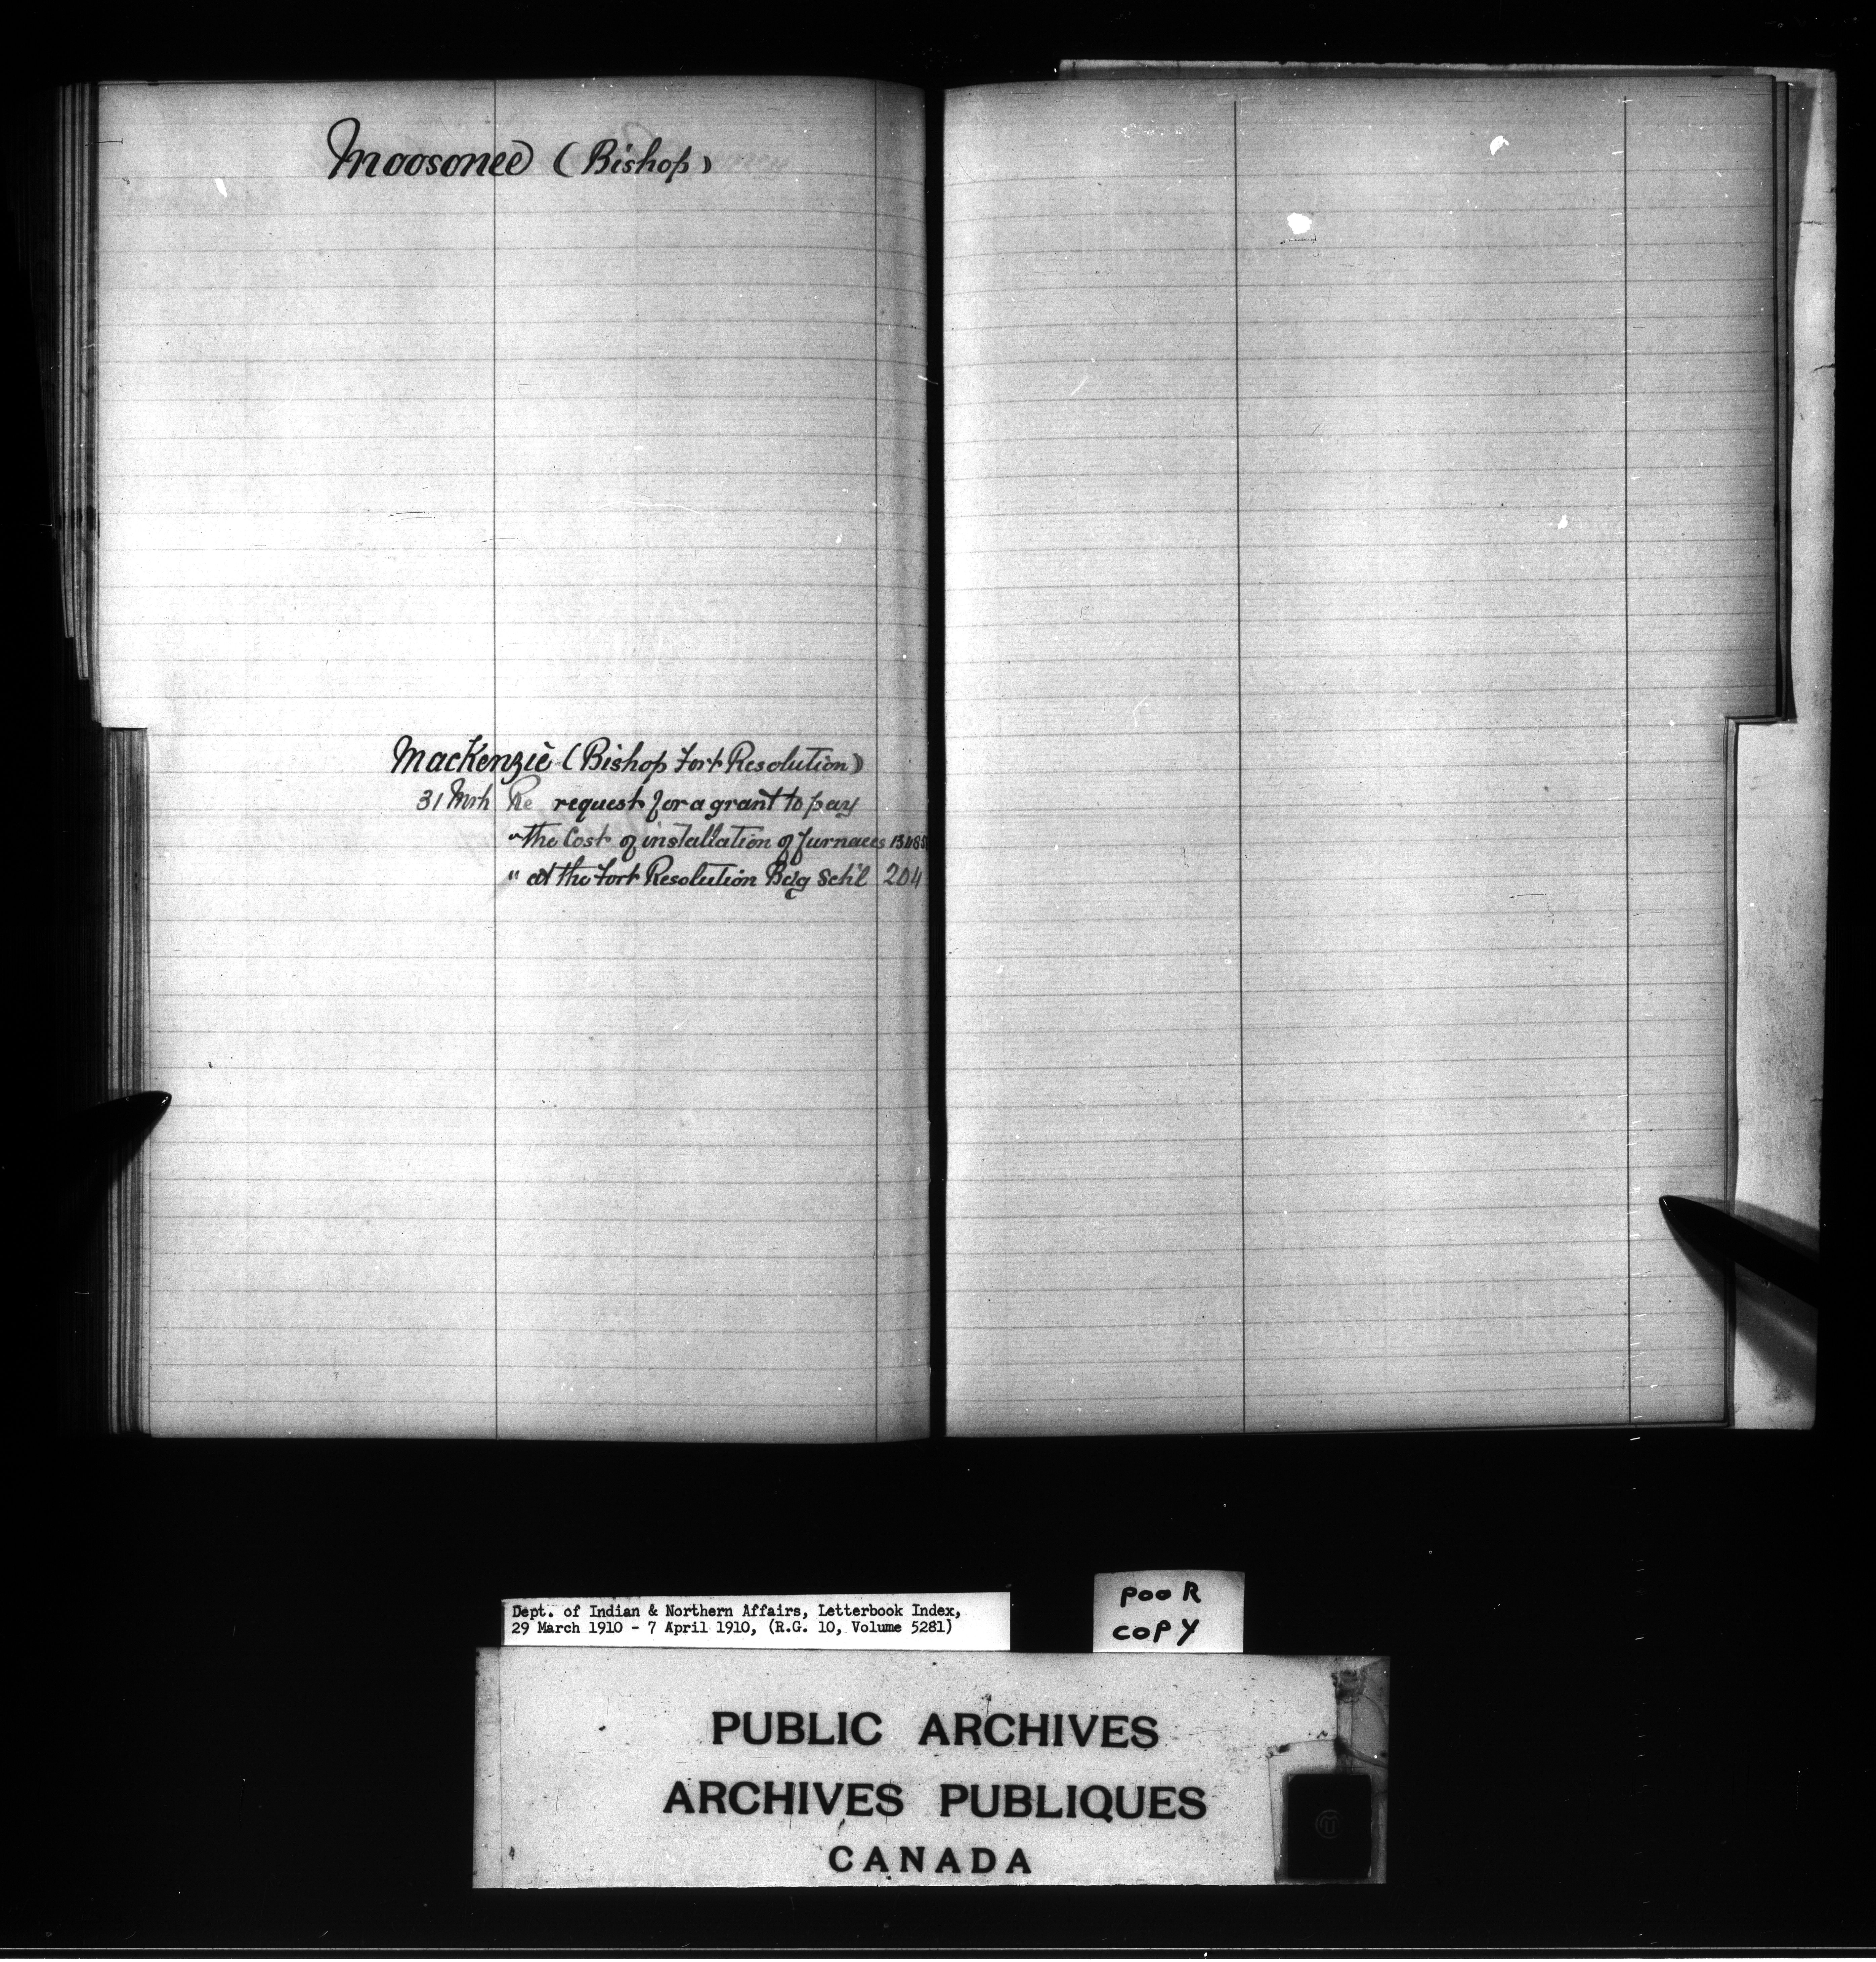 Moosonee (Bishop)
MacKenzie (Bishop Fort Resolution)
31 Mrh Re request for a grant to pay
" the Cost of installation of furnaces
" at the Fort Resolution Bdg Sch'l 204
Dept. of Indian & Northern Affairs, Letterbook Index,
29 March 1910 - 7 April 1910, (R.G. 10, Volume 5281)
POOR
COPY
PUBLIC ARCHIVES
ARCHIVES PUBLIQUES
CANADA